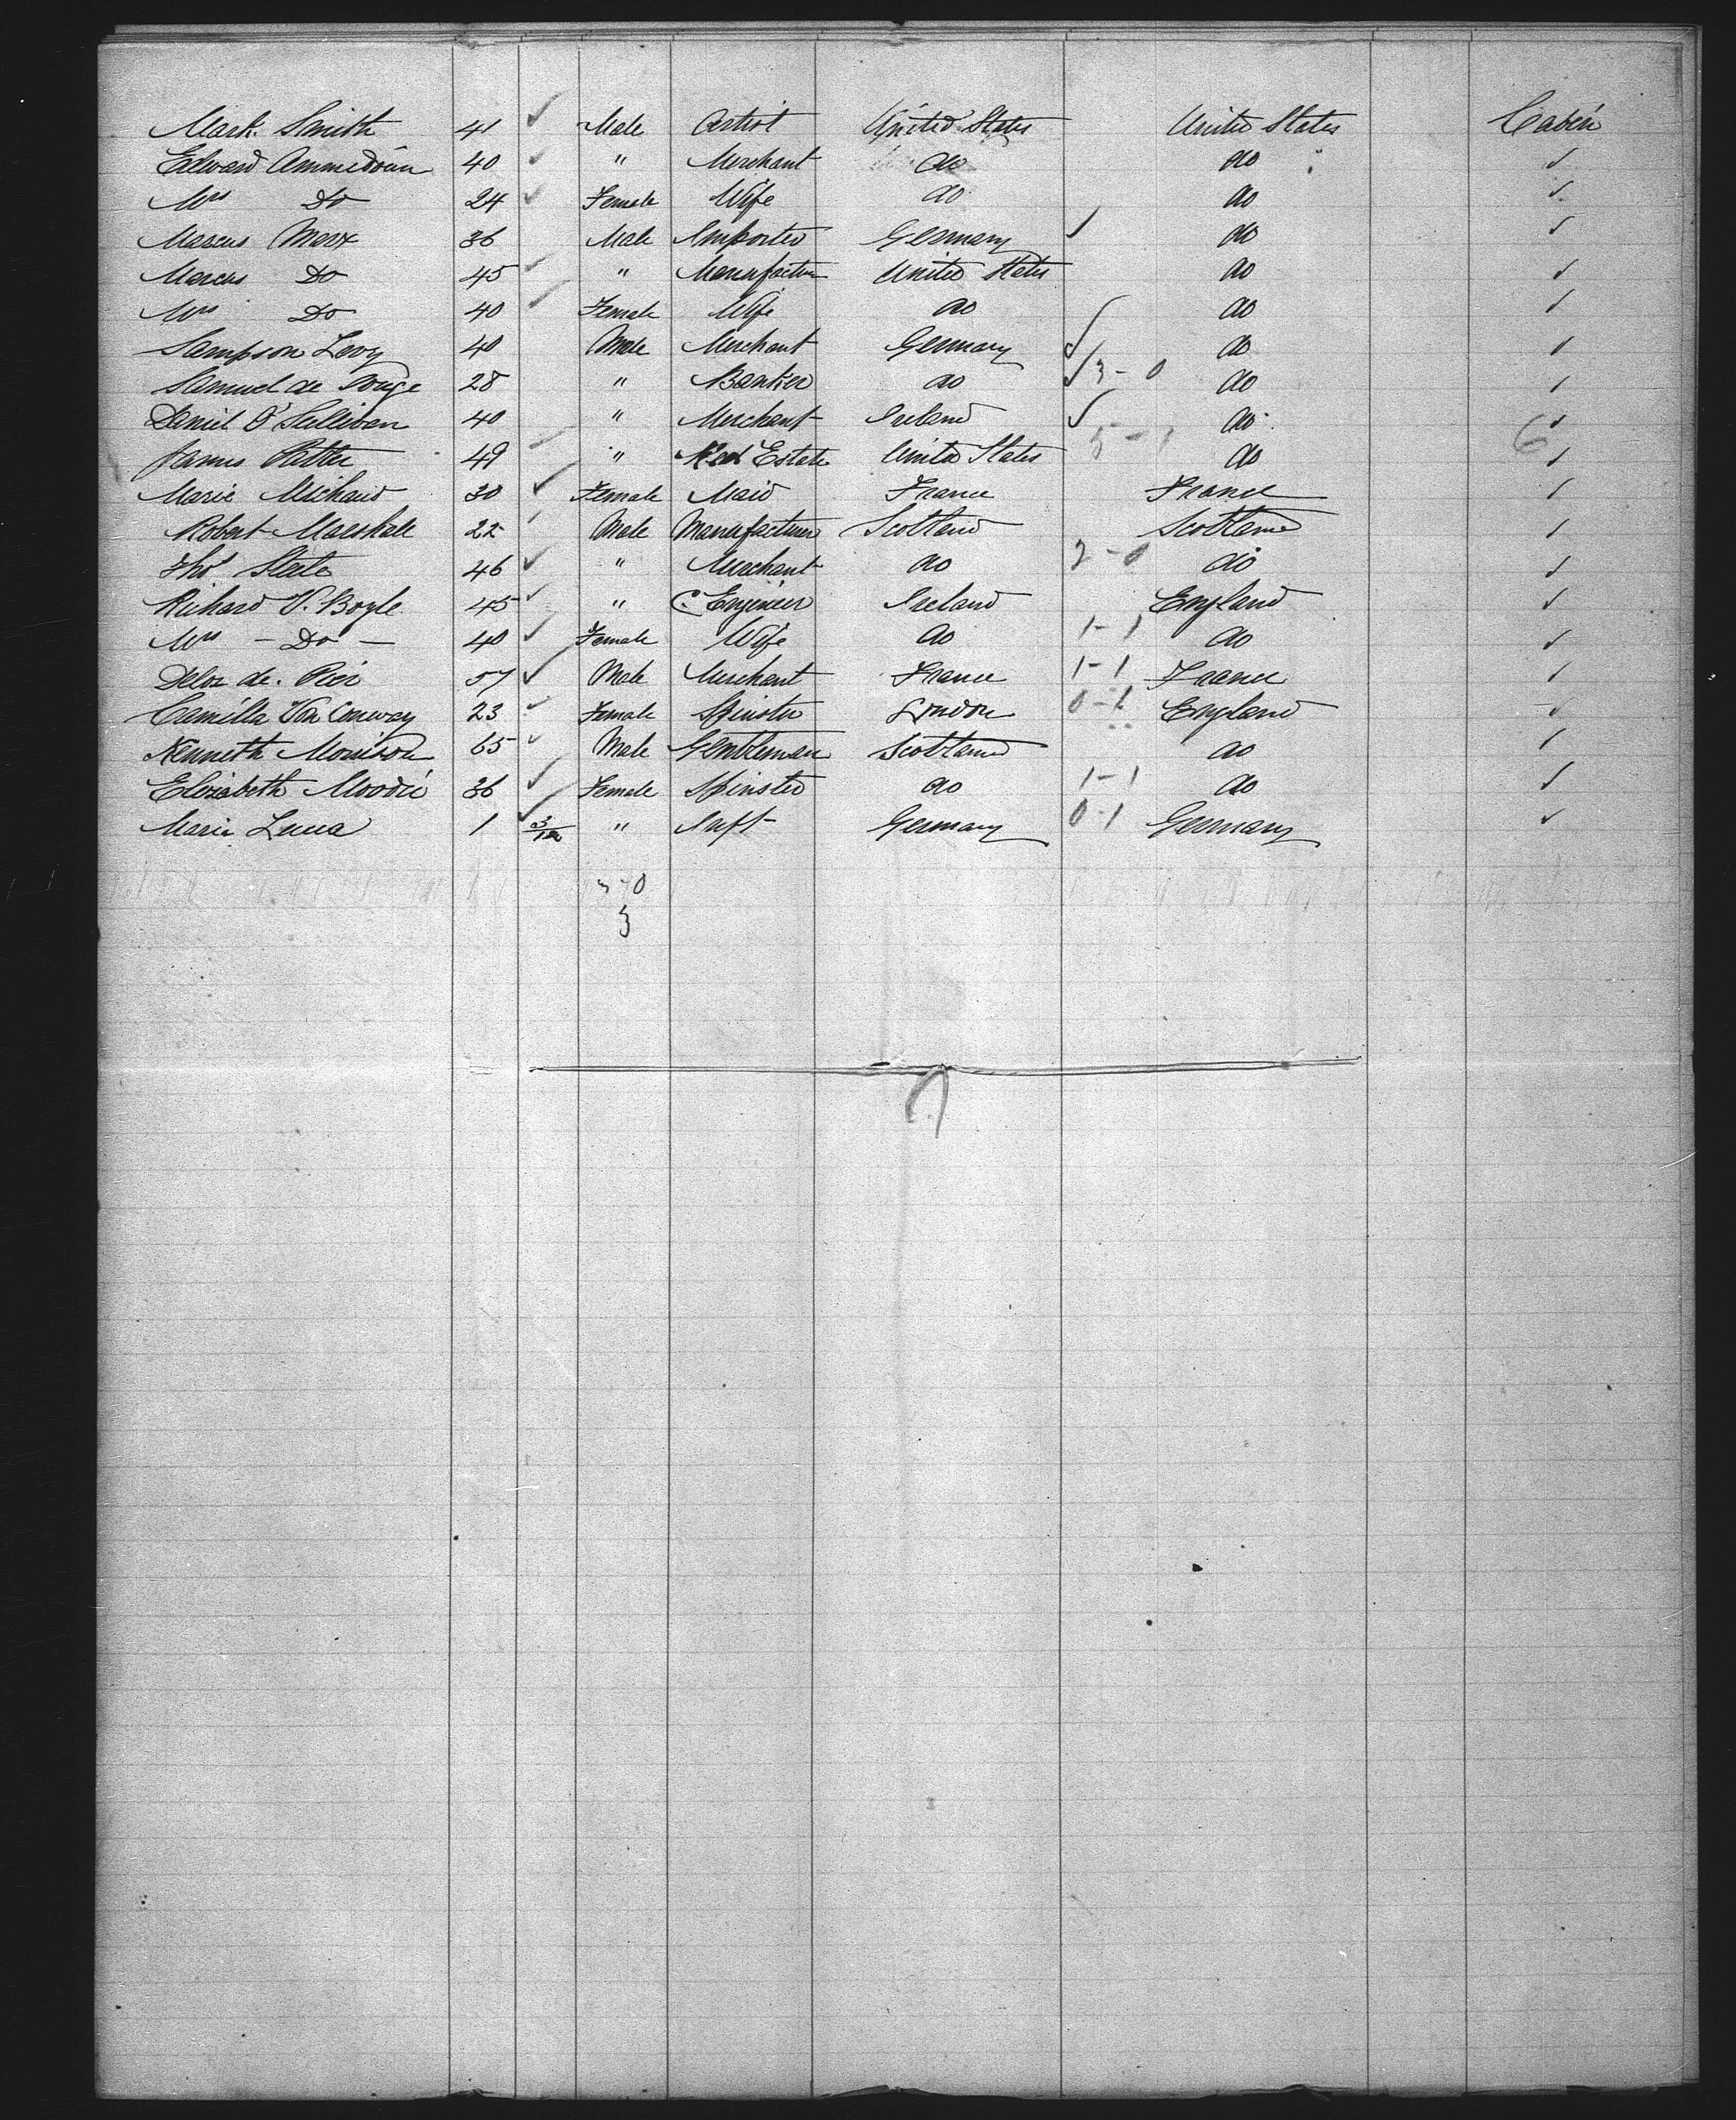 Mark Smith 41 ✓ Male Artist United States United States Cabin
Edward Ammidown 40 ✓ " Merchant do do ✓
Mrs Do 24 ✓ Female Wife do do ✓
Marcus Marx 36 Male Importer Germany ✓ do ✓
Marcus Do 45 ✓ " Manufacturer United States do ✓
Mrs Do 40 ✓ Female Wife do do ✓
Sampson Levy 40 Male Merchant Germany ✓ do ✓
Samuel de 28 " Banker do ✓ 3-0 do ✓
Daniel O'Sullivan 40 " Merchant Ireland ✓ do ✓
James Potter 49 " Real Estate United States 5-1 do 6 ✓
Marie Michaud 30 ✓ Female Maid France France ✓
Robert Marshall 22 ✓ Male Manufacturer Scotland Scotland ✓
Thos 46 ✓ " Merchant do 2-0 do ✓
Richard V. Boyle 45 ✓ " C. Engineer Ireland England ✓
Mrs - Do - 40 ✓ Female Wife do 1-1 do ✓
de. 57 ✓ Male Merchant France 1-1 France ✓
Camilla Von Conway 23 ✓ Female Spinster London England ✓
Kenneth Morrison 65 ✓ Male Gentleman Scotland do ✓
Elizabeth Moodie 36 ✓ Female Spinster do 1-1 do ✓
Marie 1 3/12 ✓ " Inft Germany 0-1 Germany ✓
3